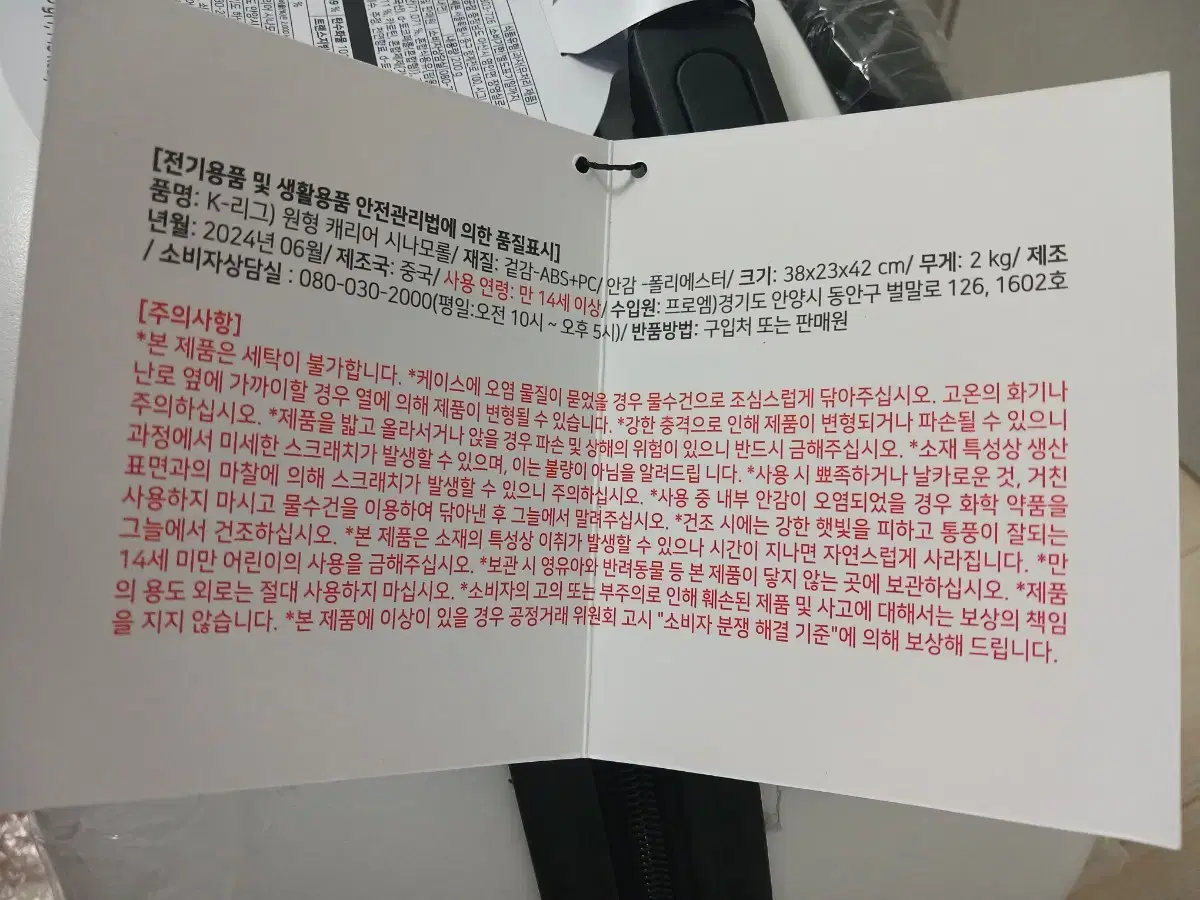 [전기용품 및 생활용품 안전관리법에 의한 품질표시]
품명: K-리그) 원형 캐리어 시나모롤/ 재질: 겉감-ABS+PC/ 안감 -폴리에스터/ 크기: 38x23x42 cm/ 무게: 2 kg/ 제조
년월: 2024년 06월/ 제조국: 중국/ 사용 연령: 만 14세 이상/ 수입원: 프로엠)경기도 안양시 동안구 벌말로 126, 1602호
/ 소비자상담실 : 080-030-2000(평일:오전 10시 ~ 오후 5시)/ 반품방법: 구입처 또는 판매원
[주의사항]
*본 제품은 세탁이 불가합니다. *케이스에 오염 물질이 묻었을 경우 물수건으로 조심스럽게 닦아주십시오. 고온의 화기나
난로 옆에 가까이할 경우 열에 의해 제품이 변형될 수 있습니다. *강한 충격으로 인해 제품이 변형되거나 파손될 수 있으니
주의하십시오. *제품을 밟고 올라서거나 앉을 경우 파손 및 상해의 위험이 있으니 반드시 금해주십시오. *소재 특성상 생산
과정에서 미세한 스크래치가 발생할 수 있으며, 이는 불량이 아님을 알려드립 니다. *사용 시 뾰족하거나 날카로운 것, 거친
표면과의 마찰에 의해 스크래치가 발생할 수 있으니 주의하십시오. *사용 중 내부 안감이 오염되었을 경우 화학 약품을
사용하지 마시고 물수건을 이용하여 닦아낸 후 그늘에서 말려주십시오. *건조 시에는 강한 햇빛을 피하고 통풍이 잘되는
그늘에서 건조하십시오. *본 제품은 소재의 특성상 이취가 발생할 수 있으나 시간이 지나면 자연스럽게 사라집니다. *만
14세 미만 어린이의 사용을 금해주십시오. *보관 시 영유아와 반려동물 등 본 제품이 닿지 않는 곳에 보관하십시오. *제품
의 용도 외로는 절대 사용하지 마십시오. *소비자의 고의 또는 부주의로 인해 훼손된 제품 및 사고에 대해서는 보상의 책임
을 지지 않습니다. *본 제품에 이상이 있을 경우 공정거래 위원회 고시 "소비자 분쟁 해결 기준"에 의해 보상해 드립니다.